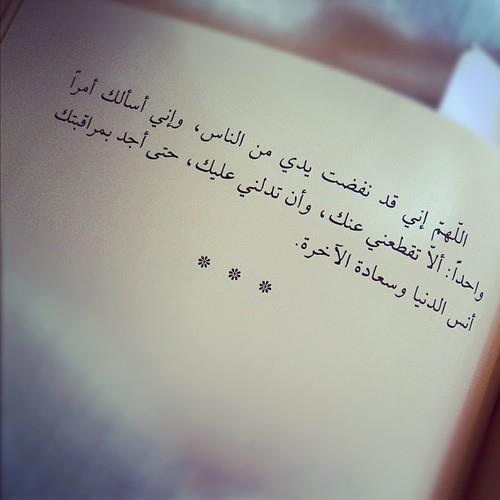 اللّهمّ إني قد نفضت يدي من الناس، وإني أسألك أمراً
واحداً: ألاّ تقطعني عنك، وأن تدلني عليك، حتى أجد بمراقبتك
أنس الدنيا وسعادة الآخرة.
* * *